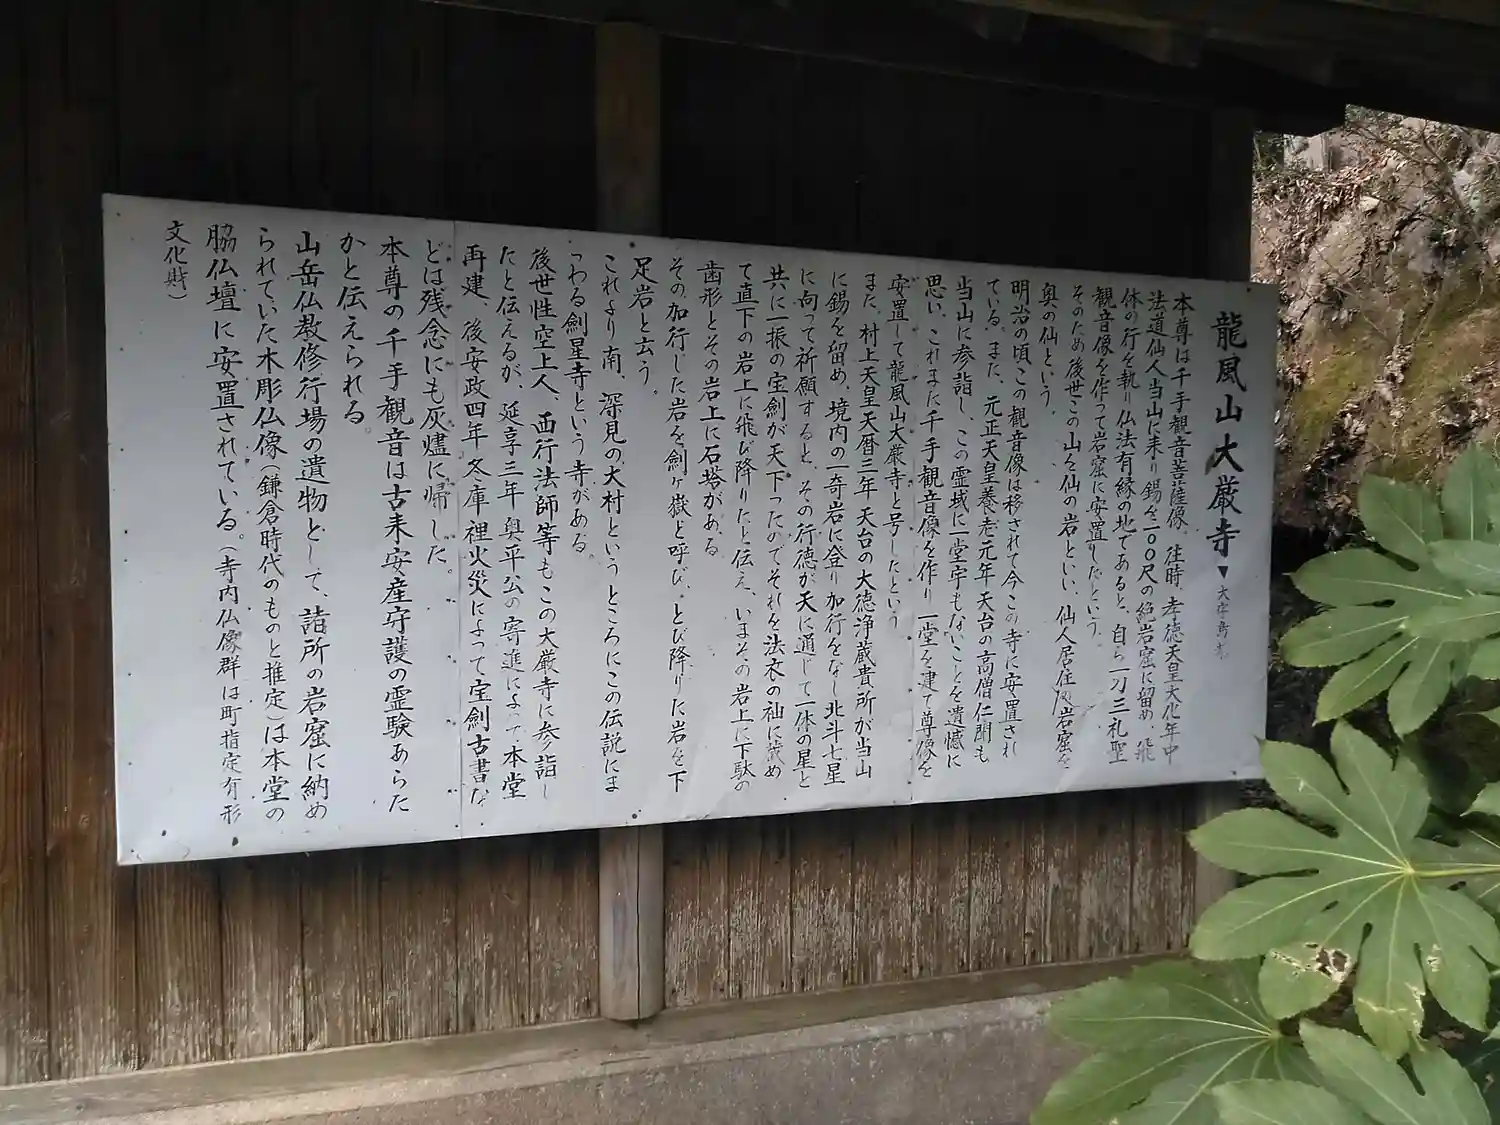 龍風山大厳寺▼大字鳥
本尊は千手観音菩薩像。往時、孝徳天皇大化年中
法道仙人当山に来り錫を二〇〇尺の絶岩窟に留め、飛
体の行を執り仏法有縁の地であると、自ら一刀三礼聖
観音像を作って岩窟に安置したという。
そのため後世この山を仙の岩といい、仙人居住 岩窟を
奥の仙という。
明治の頃、この観音像は移されて今この寺に安置され
ている。また、元正天皇養老元年天台の高僧仁聞も
当山に参詣し、この霊域に一堂宇もないことを遺憾に
思い、これまた千手観音像を作り、一堂を建て尊像を
安置して龍風山大厳寺と号したという
また、村上天皇天暦三年天台の大徳浄蔵貴所が当山
に錫を留め、境内の一奇岩に登り加行をなし北斗七星
に向って祈願すると、その行徳が天に通じて一体の星と
共に一振の宝剣が天下ったのでそれを法衣の袖に歳め
て直下の岩上に飛び降りたと伝え、いまその岩上に下駄の
歯形とその岩上に石塔がある
その加行した岩を剣ヶ嶽と呼び、とび降りた岩を下
足岩と玄う。
これより南、深見の大村というところにこの伝説にま
つわる剣星寺という寺がある。
後世性空上人、西行法師等もこの大厳寺に参り詣し
たと伝えるが、延享三年奥平公の寄進によって本堂
再建、後安政四年冬庫裡火災によって宝剣古書な
どは残念にも灰燼に帰した。
本尊の千手観音は古来安産守護の霊験あらた
かと伝えられる。
山岳仏教修行場の遺物として、諸所の岩窟に納め
られていた木彫仏像（鎌倉時代のものと推定）は本堂の
脇仏壇に安置されている。（寺内仏像群は町指定有形
文化財）